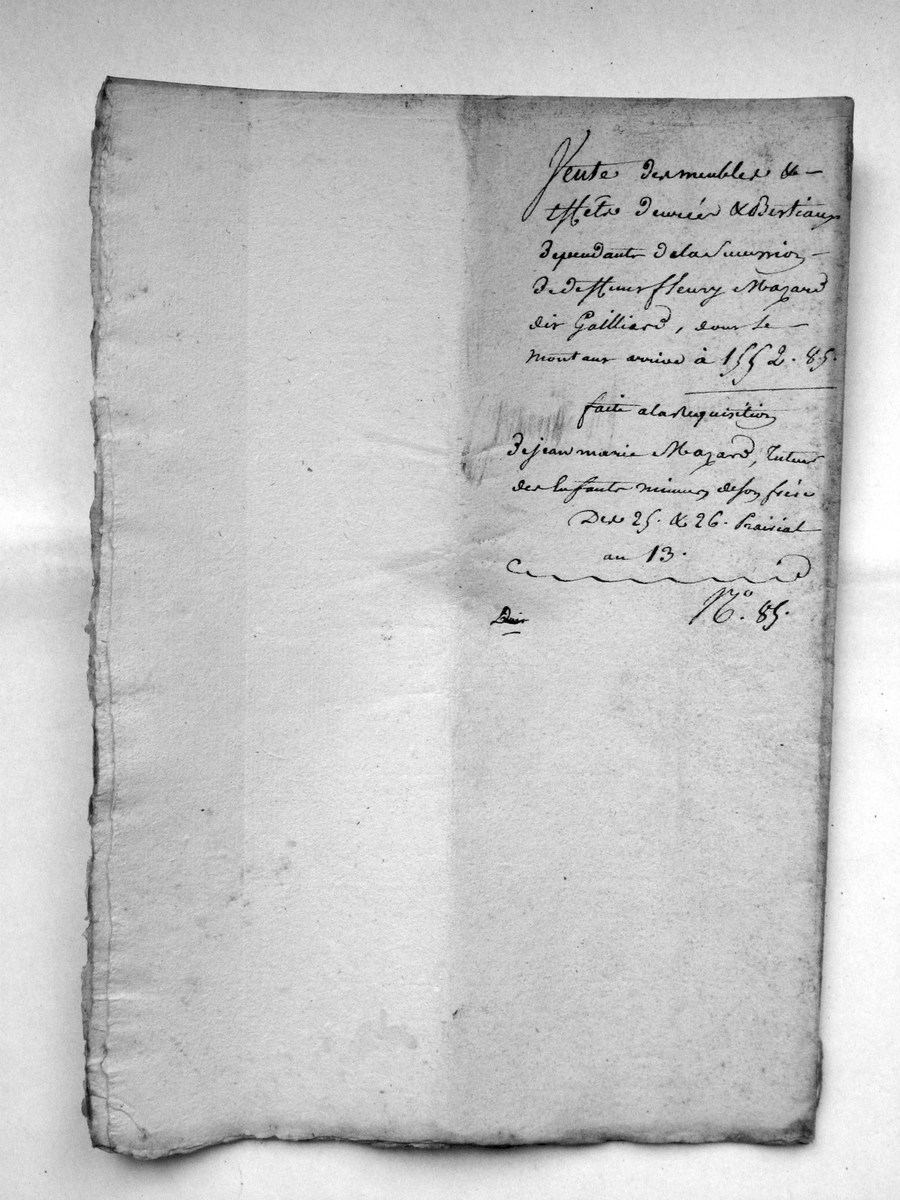 Vente des meubles &
effets denrées & Bestiaux
dependants de la Succession
de deffunt fleury Mazard
dit Gailliard, dont le
montant arrive à 1552. 85.
faite a la Requisition
de jean marie Mazard, tuteur
des Enfants mineurs de son frère
Des 25. & 26. Prairial
an 13.
N.o 85.